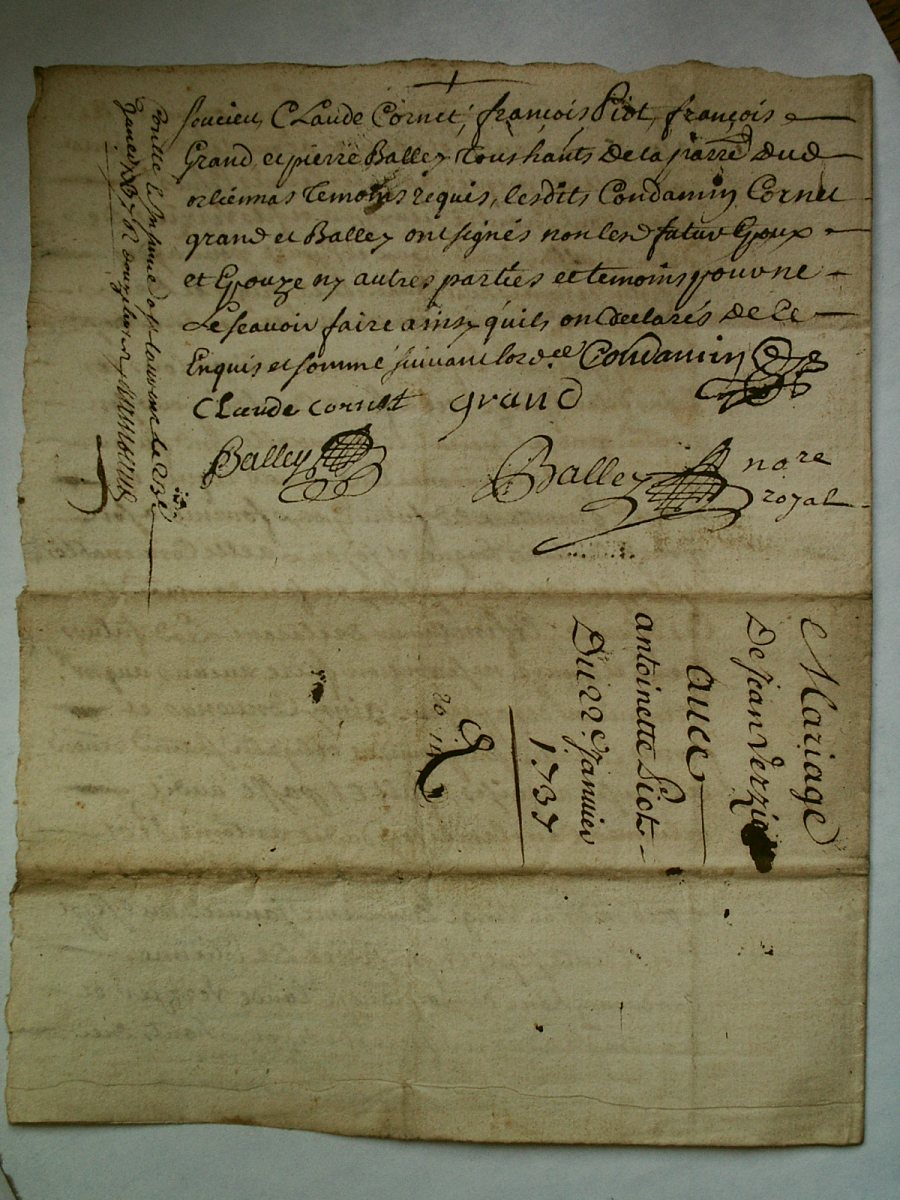 soucieu, Claude Cornet, françois Piot, françois
Grand et pierre Balley tous hants de la parre dud
orliennas temoins requis, lesdits Condamin Cornet
grand et Balley ont signés non lesd futur Epoux
et Epouze ny autres parties et temoins pour ne
Le scavoir faire ainsy quils ont declarés de ce
Enquis et sommé suivant lordce Condamin
Claude cornet grand
Balley Balley nore
royal
Mariage
De Jean Verzie
avec
antoinette Piot
Du 22e Janvier
1737